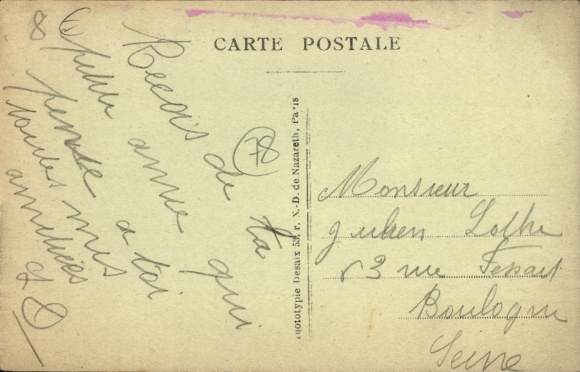 CARTE POSTALE
Recois de ta
petite amie qui
pense a toi
toutes mes
amitiées
78
8
Phototypie Desaix 53, r. N.-D. de Nazareth, Paris
Monsieur
Julien Lothe
63 rue Fessart
Boulogne
Seine